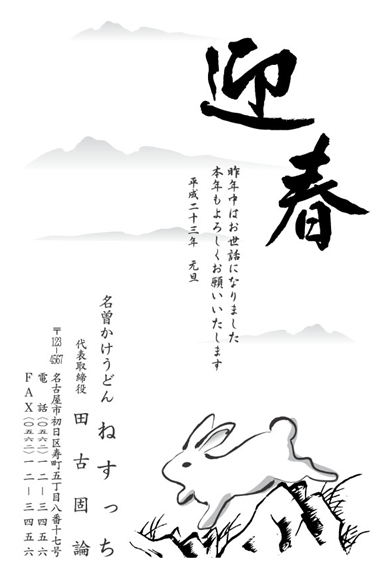 迎春
昨年中はお世話になりました
本年もよろしくお願いいたします
平成二十三年　元旦
名曽かけうどん　ねすっち
代表取締役　田古固論
〒123-4567　名古屋市初日区寿町五丁目八番十七号
電話（〇五六二）一二―三四五六
ＦＡＸ（〇五六二）一二―三四五六